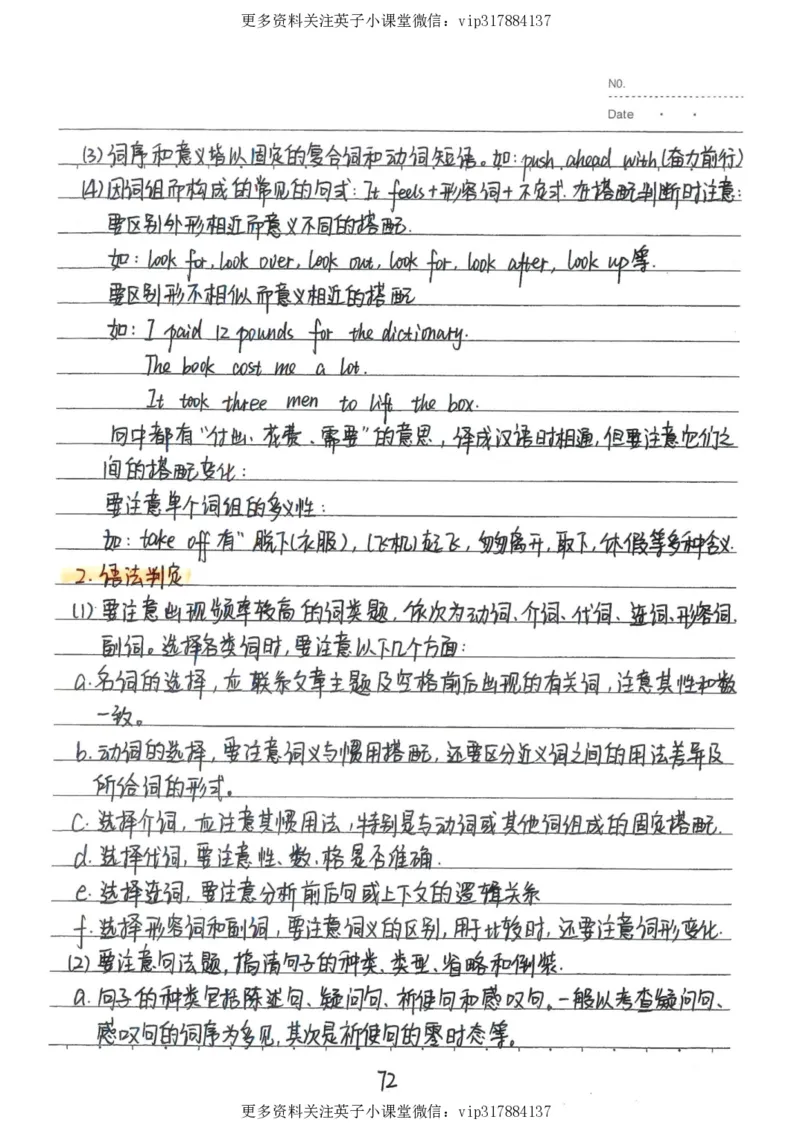 更多资料关注英子小课堂微信：vip317884137
NO.
Date
(3)词序和意义皆以固定的复合词和动词短语。如：push ahead with(奋力前行)
(4)因词组而构成的常见的句式：It feels+形容词+不定式.在搭配判断时注意：
要区别外形相近而意义不同的搭配.
如：look for, look over, look out, look for, look after, look up等.
要区别形不相似而意义相近的搭配
如：I paid 12 pounds for the dictionary.
The book cost me a lot.
It took three men to lift the box.
句中都有“付出、花费、需要”的意思，译成汉语时相通，但要注意它们之
间的搭配变化：
要注意单个词组的多义性：
如：take off 有“脱下(衣服)，(飞机)起飞，匆匆离开，取下，休假等多种含义.
2.语法判定
(1)要注意出现频率较高的词类题，依次为动词、介词、代词、连词、形容词、
副词。选择各类词时，要注意以下几个方面：
a.名词的选择，应联系文章主题及空格前后出现的有关词，注意其性和数
一致。
b.动词的选择，要注意词义与惯用搭配，还要区分近义词之间的用法差异及
所给词的形式。
c.选择介词，应注意其惯用法，特别是与动词或其他词组成的固定搭配.
d.选择代词，要注意性、数、格是否准确.
e.选择连词，要注意分析前后句或上下文的逻辑关系
f.选择形容词和副词，要注意词义的区别，用于比较时，还要注意词形变化.
(2)要注意句法题，搞清句子的种类、类型、省略和倒装.
a.句子的种类包括陈述句、疑问句、祈使句和感叹句。一般以考查疑问句、
感叹句的词序为多见，其次是祈使句的零时态等。
72
更多资料关注英子小课堂微信：vip317884137